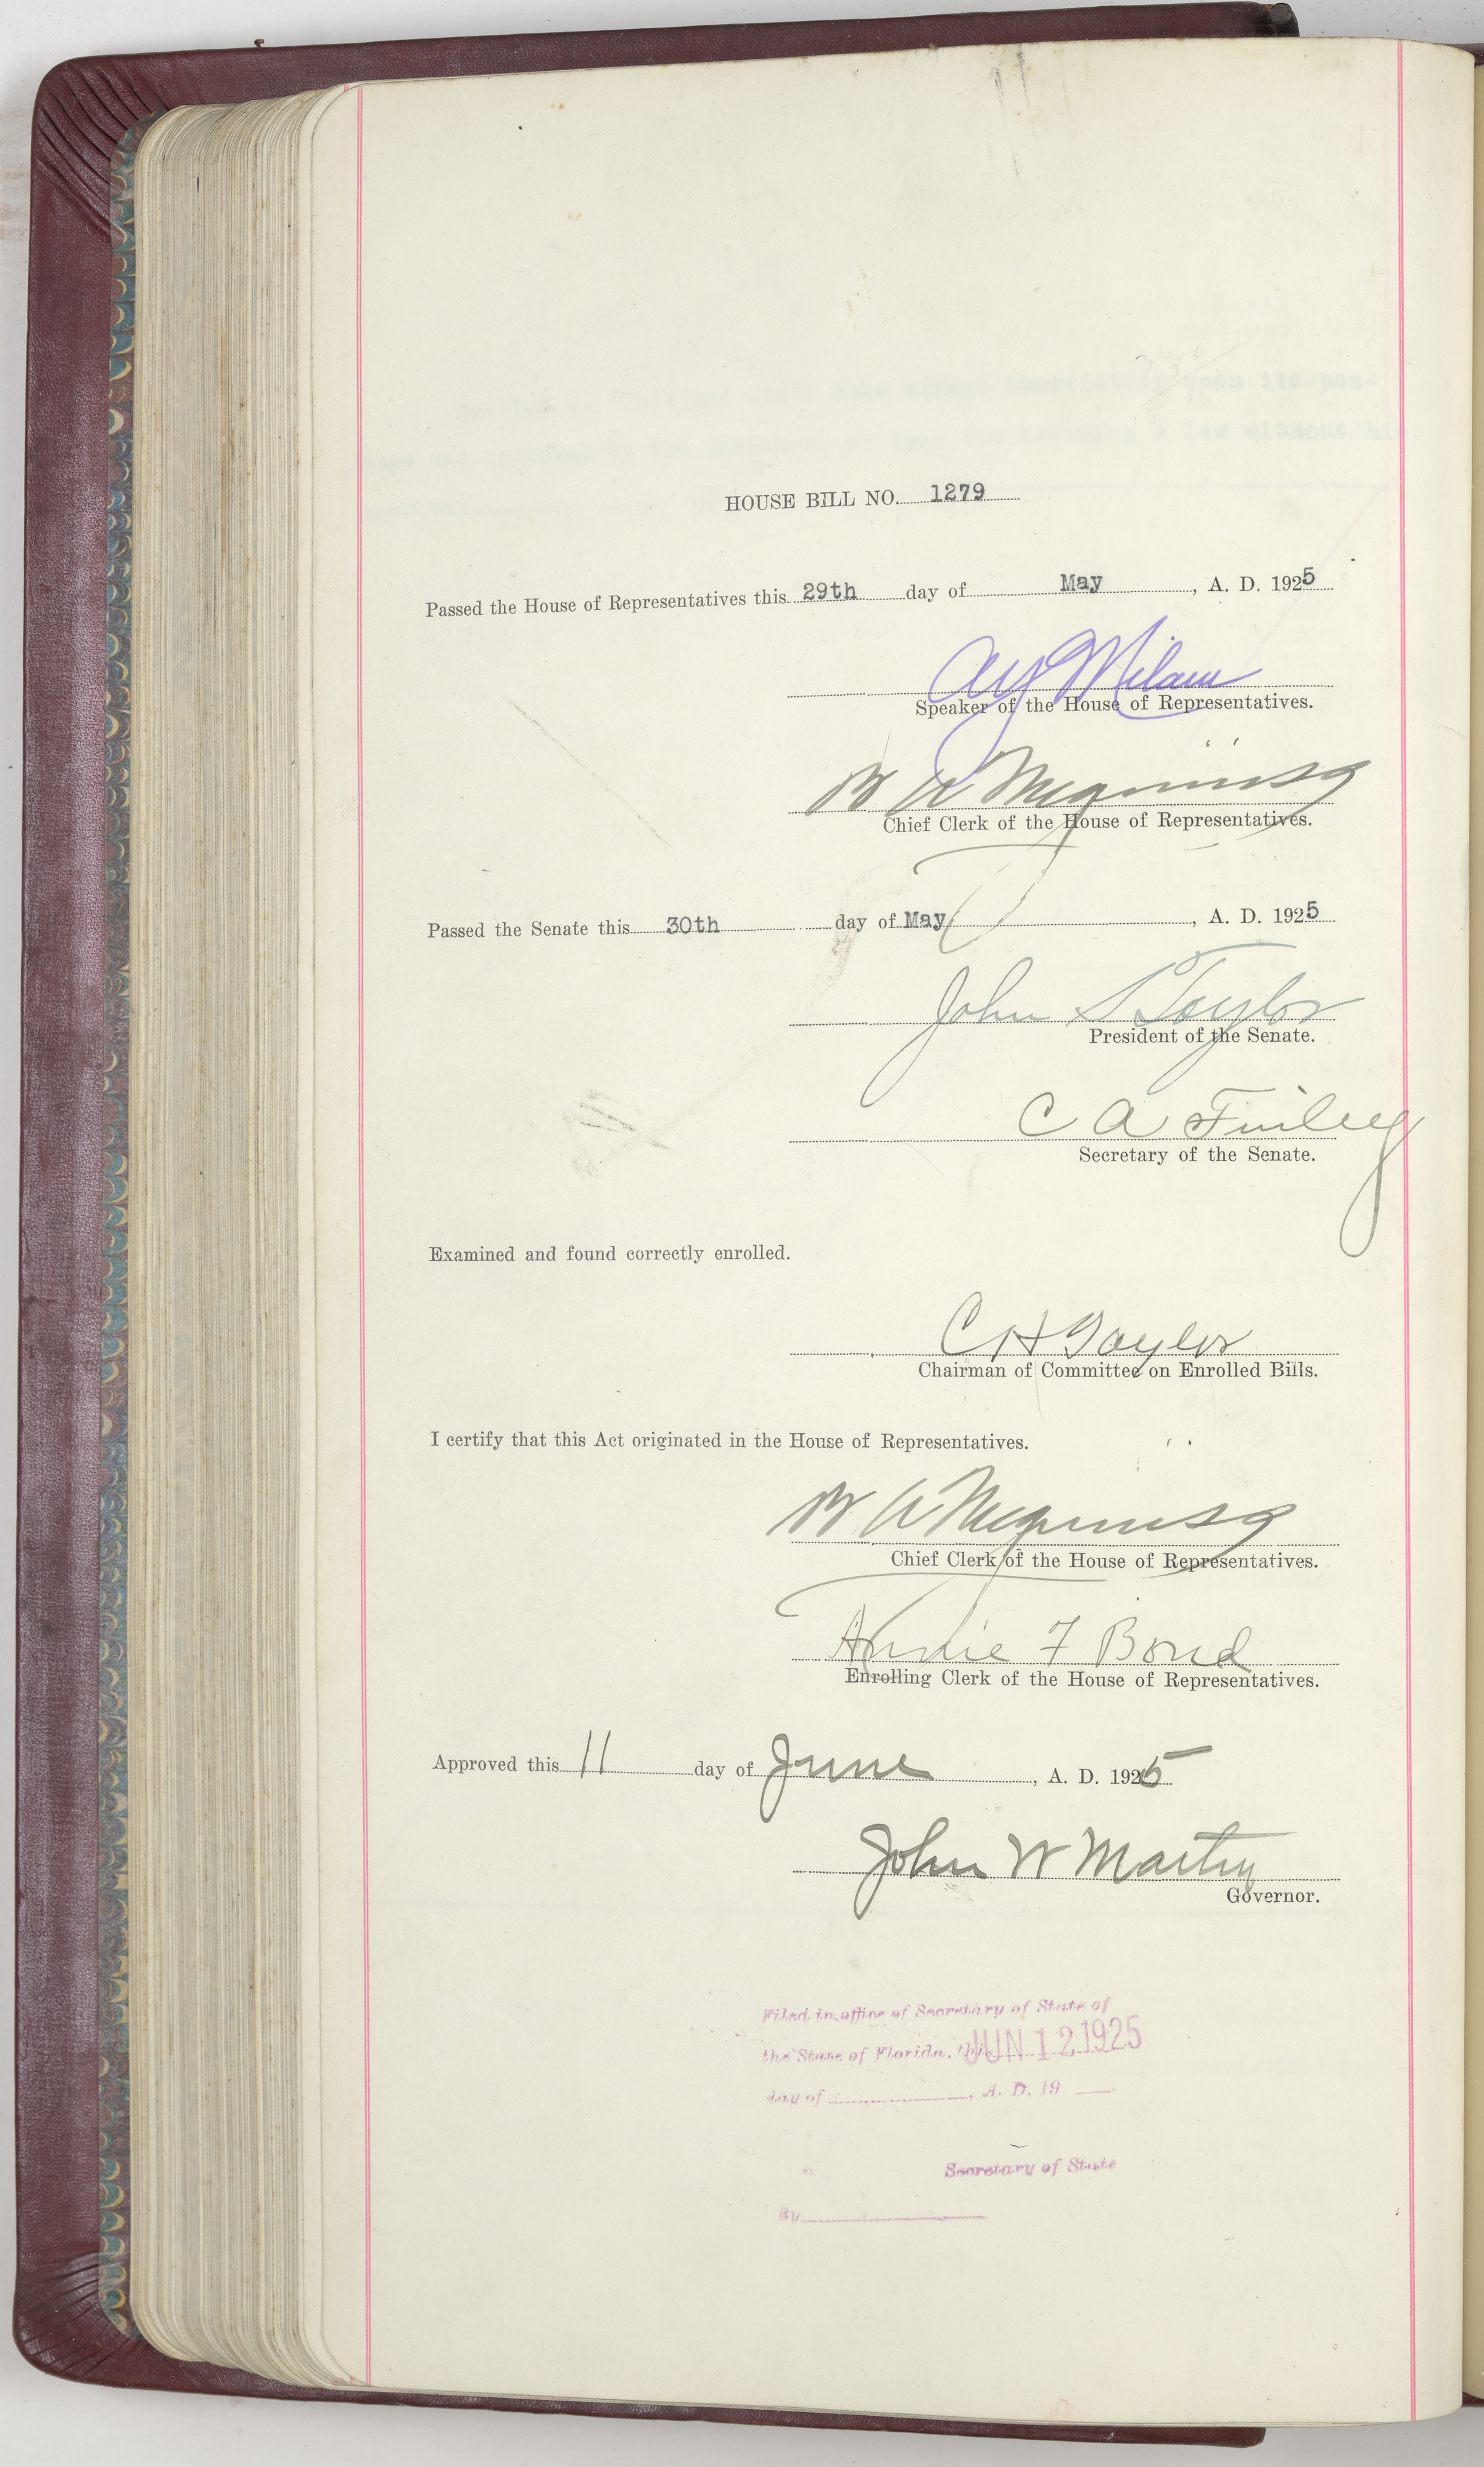 HOUSE BILL NO. 1279
Passed the House of Representatives this 29th day of May, A. D. 1925
A Y Milam
Speaker of the House of Representatives.
Chief Clerk of the House of Representatives.
Passed the Senate this 30th day of May, A. D. 1925
John S Taylor
President of the Senate.
C A Finley
Secretary of the Senate.
Examined and found correctly enrolled.
C H Taylor
Chairman of Committee on Enrolled Bills.
I certify that this Act originated in the House of Representatives.
Chief Clerk of the House of Representatives.
Annie F Bond
Enrolling Clerk of the House of Representatives.
Approved this 11 day of June, A. D. 1925
John W Martin
Governor.
Filed in office of Secretary of State of
the State of Florida, this JUN 12 1925
day of , A. D. 19
Secretary of State
By